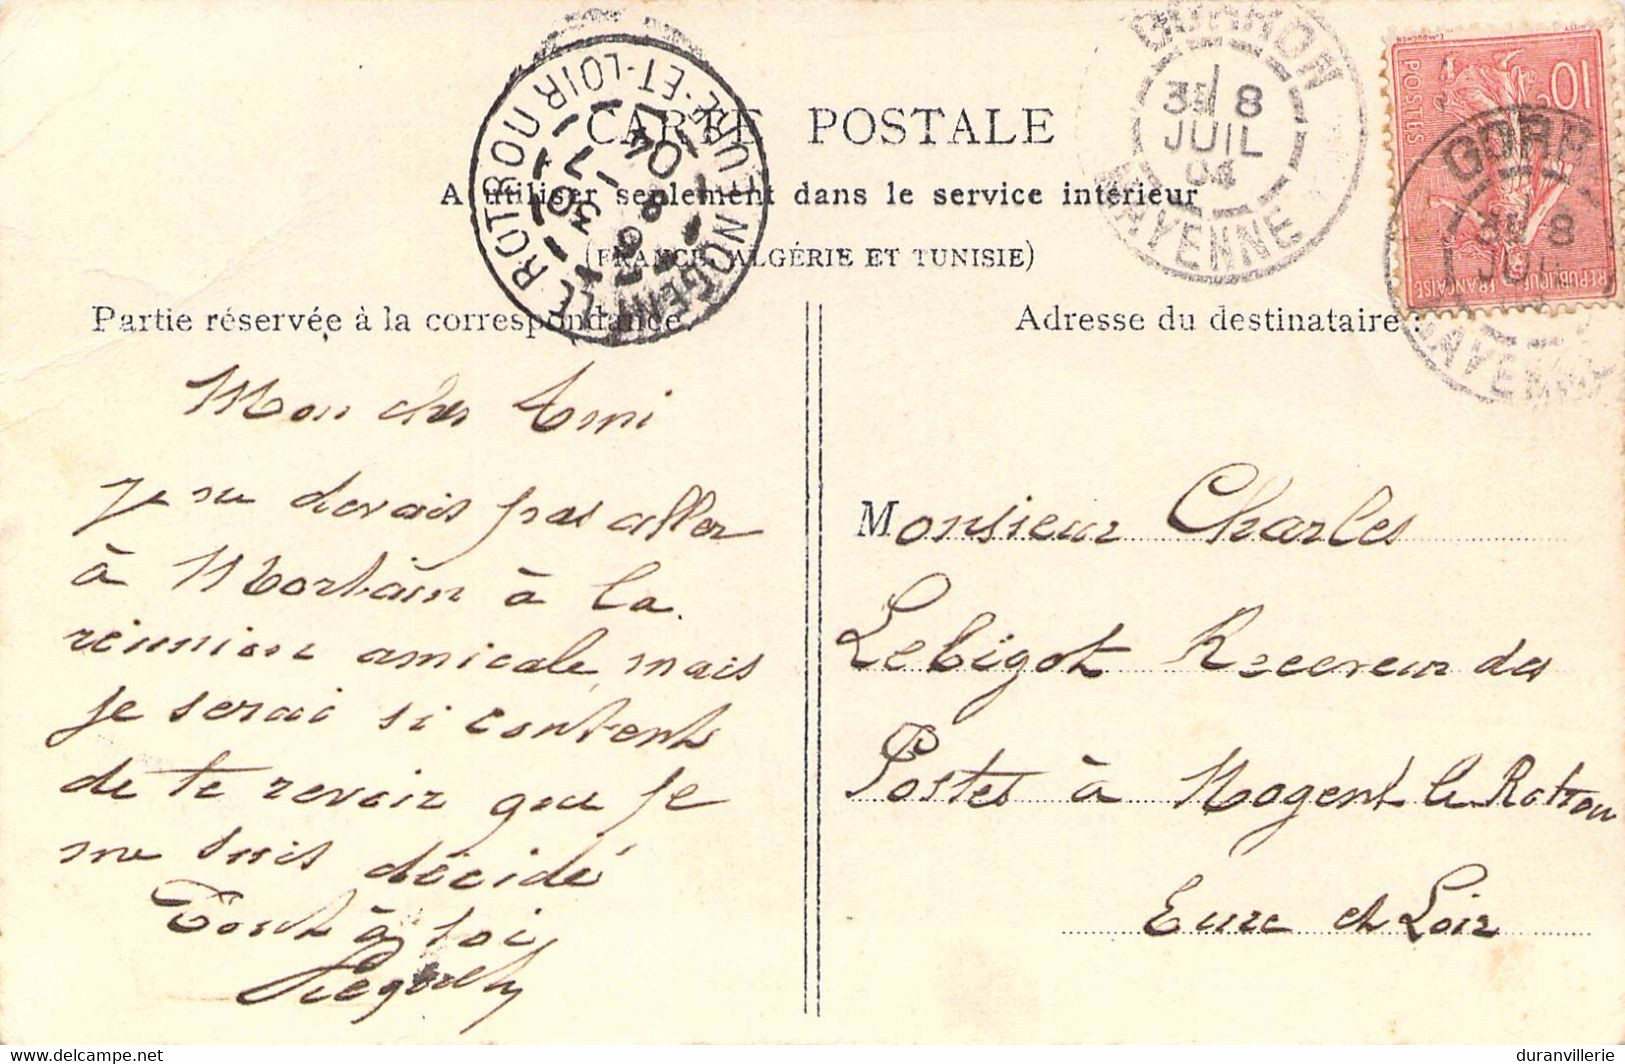 CARTE POSTALE
A utiliser seulement dans le service intérieur
(FRANCE, ALGÉRIE ET TUNISIE)
Partie réservée à la correspondance.
Mon cher Ami
Je ne devais pas aller
à Mortain à la
réunion amicale, mais
je serai si content
de te revoir que je
me suis décidé
Tout à toi
Adresse du destinataire :
Monsieur Charles
Lebigot Receveur des
Postes à Nogent le Rotrou
Eure et Loir
NOGENT-LE-ROTROU
EURE-ET-LOIR
8 -7
04
GORRON
3E 8
JUIL
04
MAYENNE
10c
POSTES
REPUBLIQUE FRANÇAISE
L. MOUCHON
GORRON
3E 8
JUIL
MAYENNE
www.delcampe.net
duranvillerie